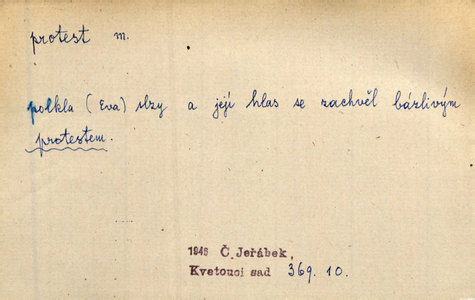 protest m.
polkla (Eva) slzy a její hlas se zachvěl bázlivým
protestem.
1946 Č. Jeřábek,
Kvetouci sad 369. 10.